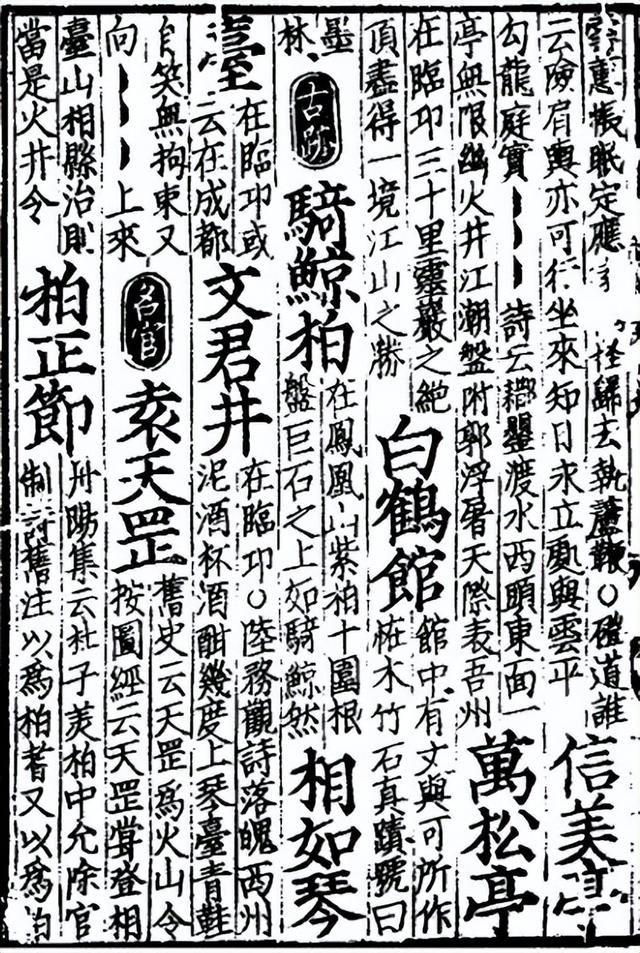 悵眠定應
怪歸去執鞭○磴道誰
云險肩輿亦可行坐來知日永立處與雲平
信美
勾龍庭實｜｜｜詩云
罌渡水西頭東面一
亭無限幽火井江潮盤附郭浮暑天際表吾州
萬松亭
在臨邛三十里靈巖之絕
頂盡得一境江山之勝
白鶴館
館中有文與可所作
枯木竹石真蹟號曰
墨林
古跡
騎鯨柏
在鳳凰山紫柏十圍根
盤巨石之上如騎鯨然
相如琴
臺
在臨邛或
云在成都
文君井
在臨邛○陸務觀詩落魄西州
泥酒杯酒酣幾度上琴臺青鞋
自笑無拘束又
向｜｜｜上來
名官
袁天罡
舊史云天罡為火山令
按圖經云天罡嘗登相
臺山相縣治則
當是火井令
柏正節
丹陽集云杜子美柏中允除官
制詩舊注以為柏耆又以為柏